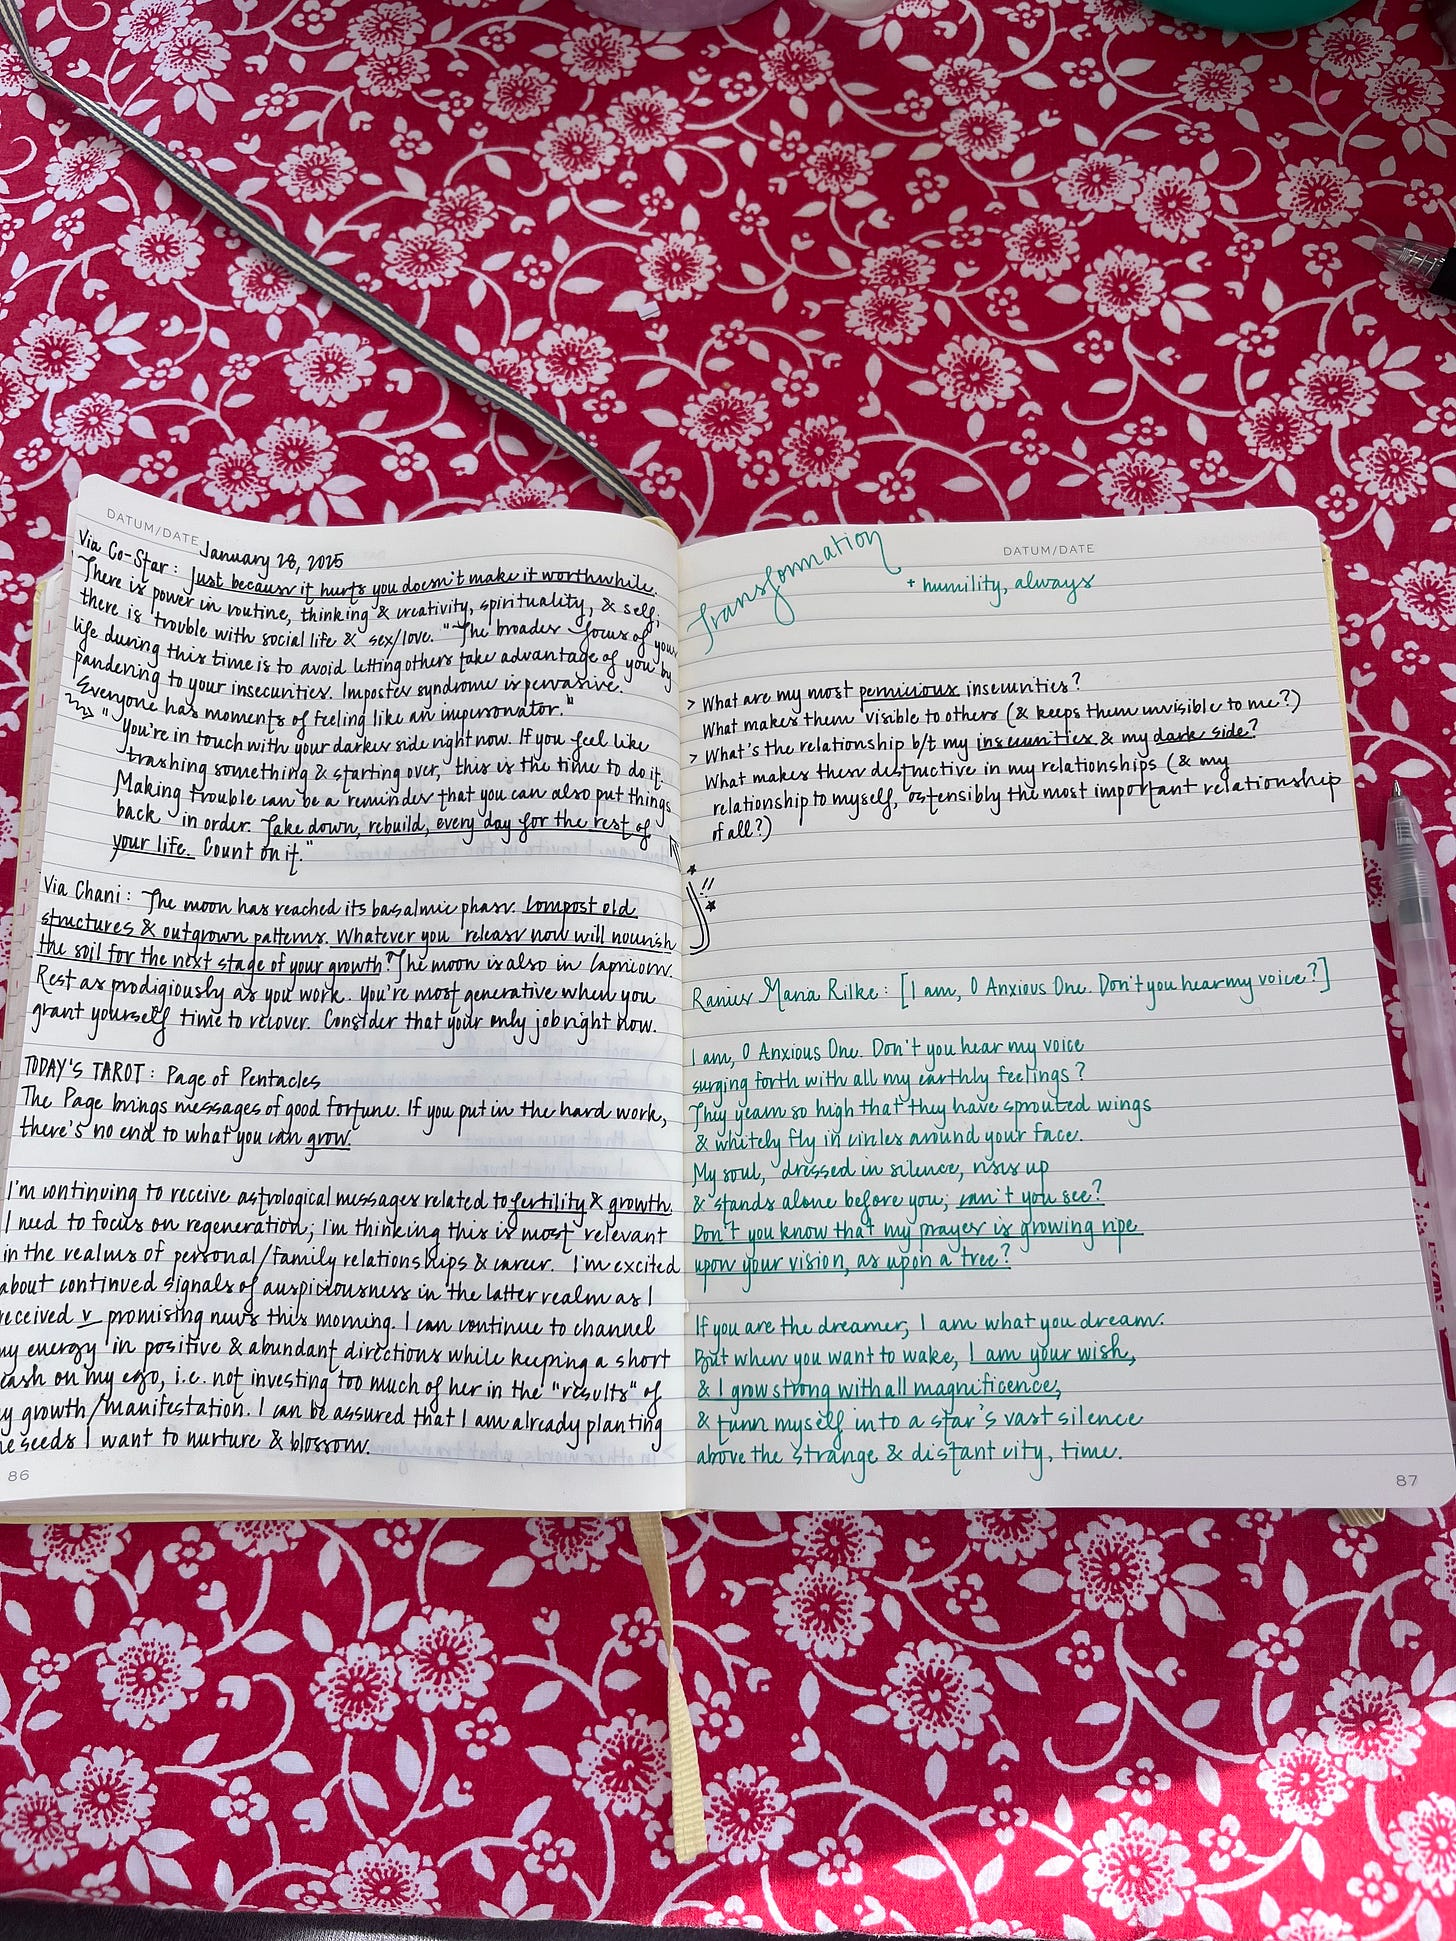 DATUM/DATE January 28, 2025
Via Co-Star: Just because it hurts you doesn't make it worthwhile.
There is power in routine, thinking & creativity, spirituality, & self;
there is trouble with social life & sex/love. "The broader focus of your
life during this time is to avoid letting others take advantage of you by
pandering to your insecurities. Imposter syndrome is pervasive.
Everyone has moments of feeling like an impersonator."
"You're in touch with your darker side right now. If you feel like
trashing something & starting over, this is the time to do it.
Making trouble can be a reminder that you can also put things
back in order. Take down, rebuild, every day for the rest of
your life. Count on it."
Via Chani: The moon has reached its basalmic phase. Compost old
structures & outgrown patterns. Whatever you release now will nourish
the soil for the next stage of your growth. The moon is also in Capricorn.
Rest as prodigiously as you work. You're most generative when you
grant yourself time to recover. Consider that your only job right now.
TODAY'S TAROT: Page of Pentacles
The Page brings messages of good fortune. If you put in the hard work,
there's no end to what you can grow.
I'm continuing to receive astrological messages related to fertility & growth.
I need to focus on regeneration; I'm thinking this is most relevant
in the realms of personal/family relationships & career. I'm excited
about continued signals of auspiciousness in the latter realm as I
received v promising news this morning. I can continue to channel
my energy in positive & abundant directions while keeping a short
leash on my ego, i.e. not investing too much of her in the "results" of
my growth/manifestation. I can be assured that I am already planting
the seeds I want to nurture & blossom.
86
DATUM/DATE
Transformation
+ humility, always
> What are my most pernicious insecurities?
What makes them visible to others (& keeps them invisible to me?)
> What's the relationship b/t my insecurities & my dark side?
What makes these destructive in my relationships (& my
relationship to myself, ostensibly the most important relationship
of all?)
!!
Ranier Maria Rilke: [I am, O Anxious One. Don't you hear my voice?]
I am, O Anxious One. Don't you hear my voice
surging forth with all my earthly feelings?
They yearn so high that they have sprouted wings
& whitely fly in circles around your face.
My soul, dressed in silence, rises up
& stands alone before you; can't you see?
Don't you know that my prayer is growing ripe
upon your vision, as upon a tree?
If you are the dreamer, I am what you dream.
But when you want to wake, I am your wish,
& I grow strong with all magnificence,
& turn myself into a star's vast silence
above the strange & distant city, time.
87